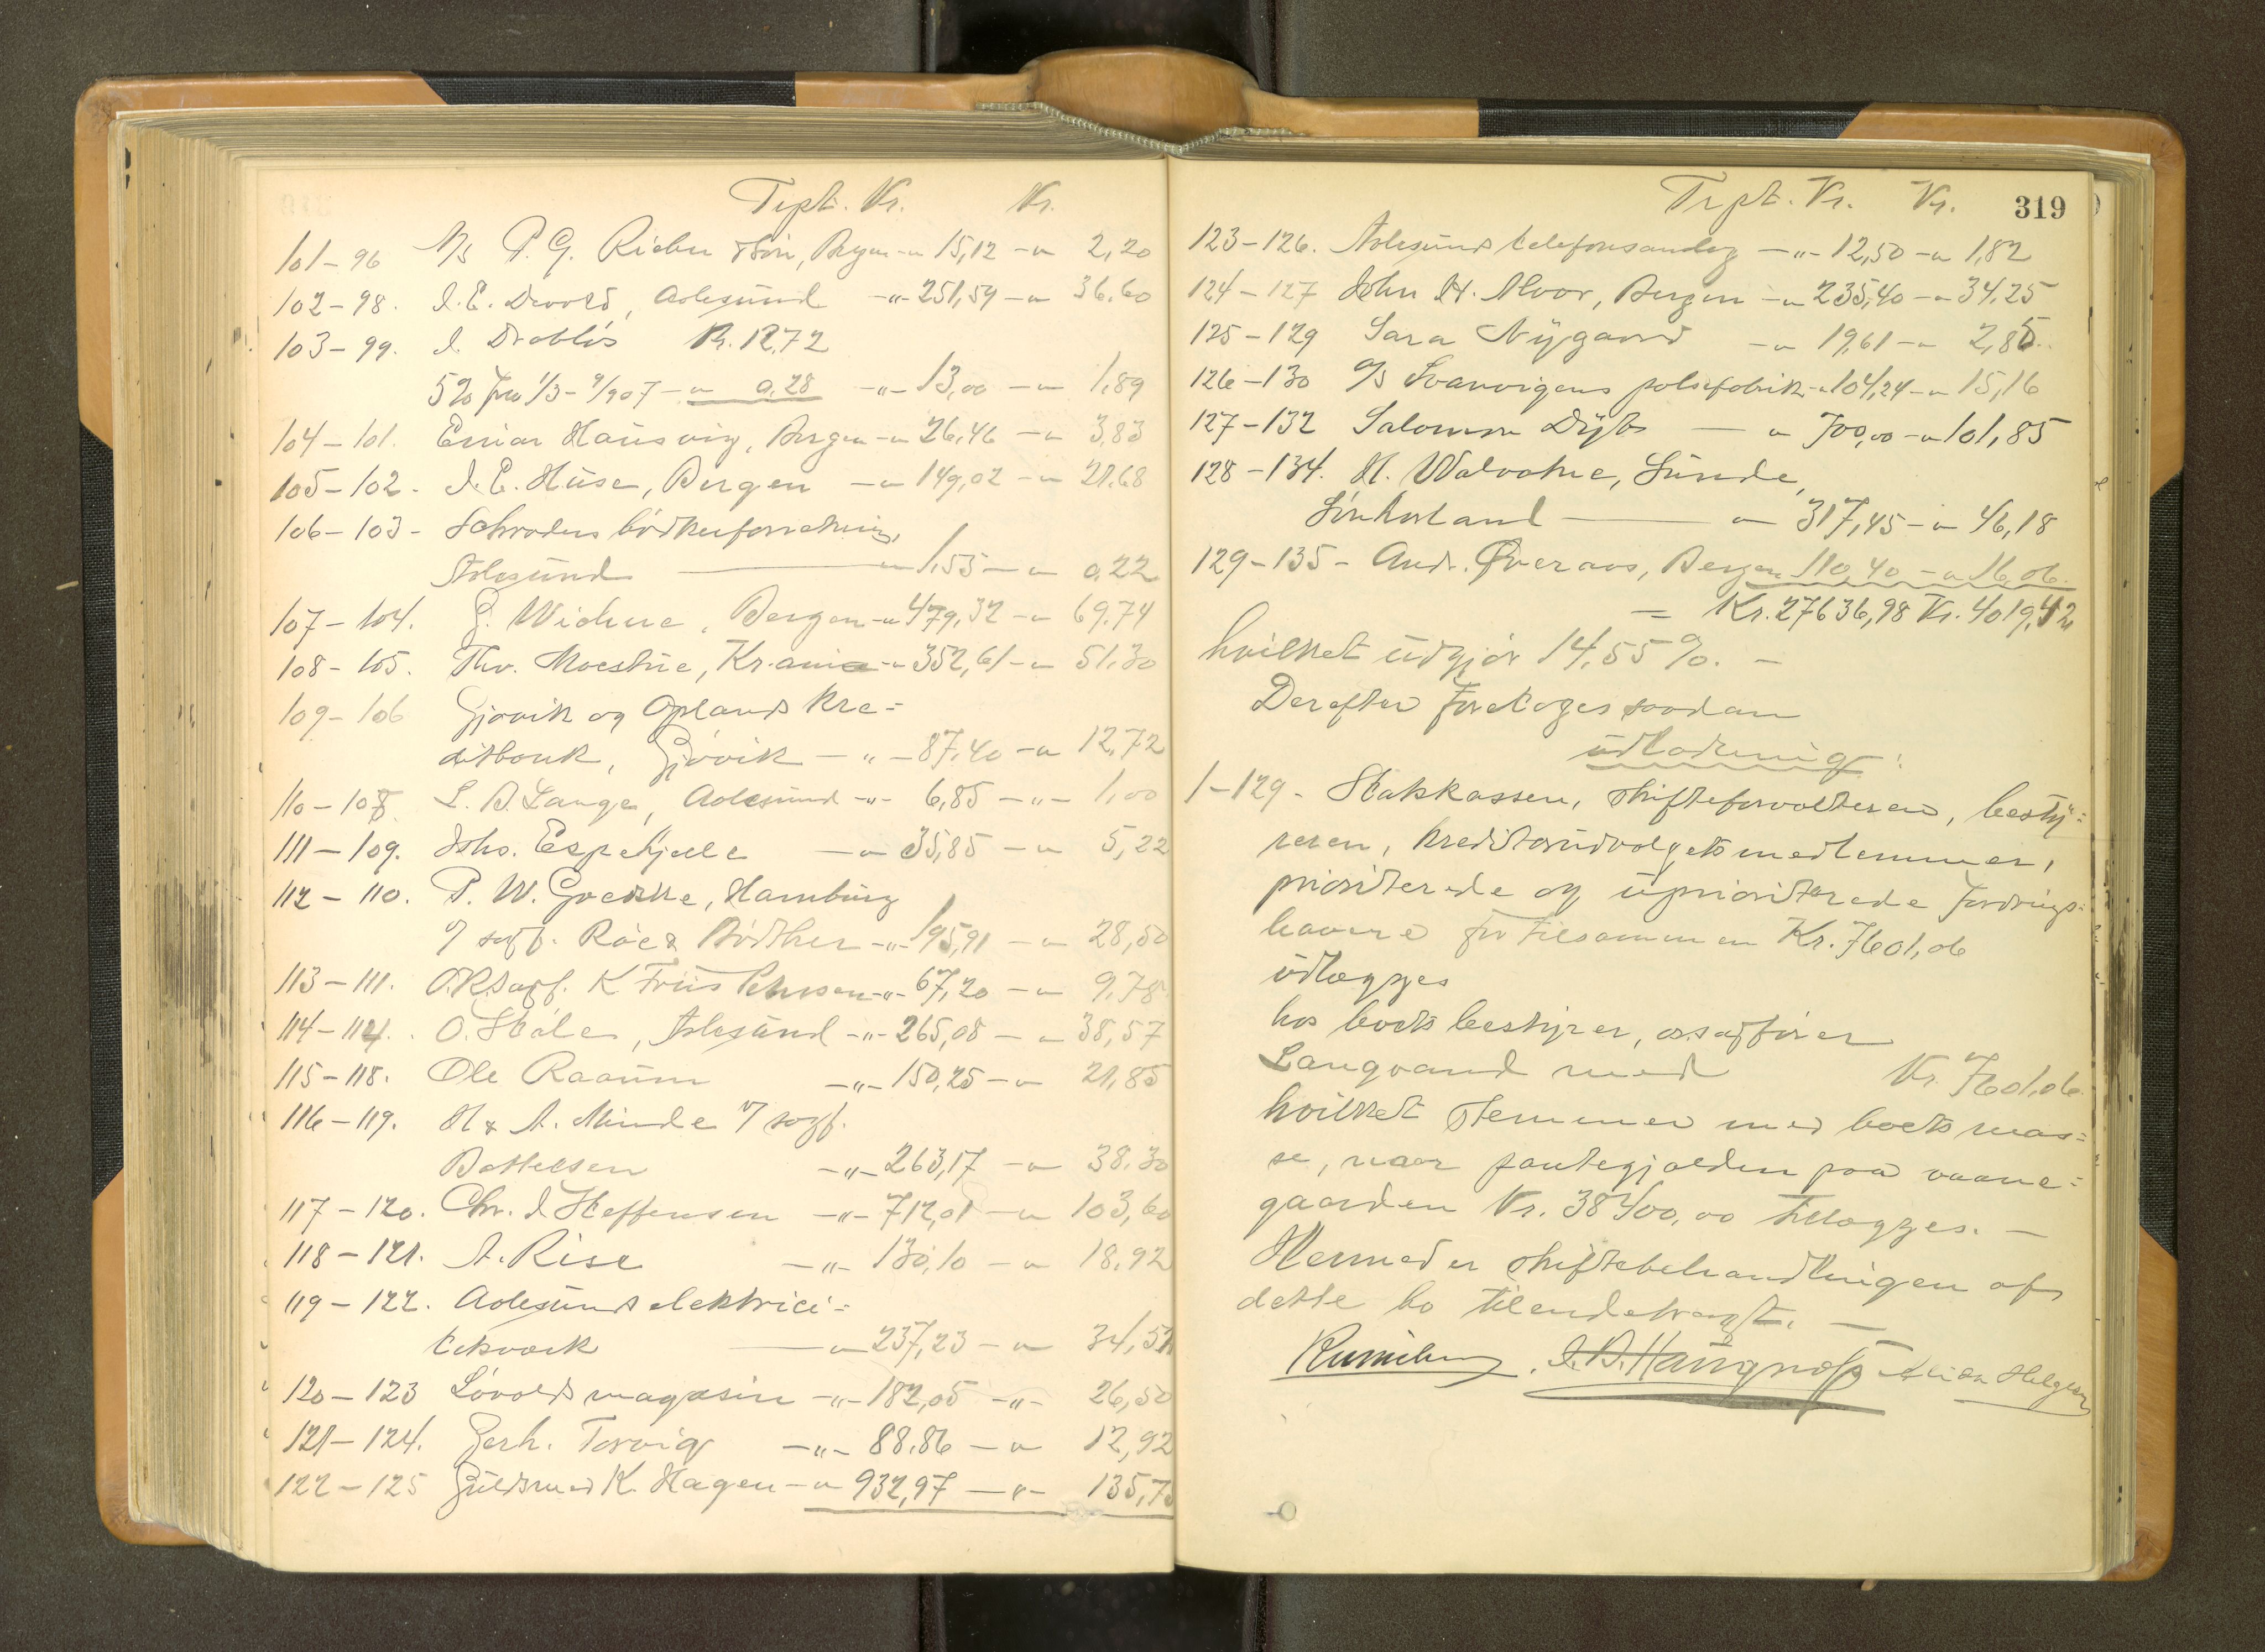 Trpt. Kr. Kr.
101-96 A/s P. G. Rieber & Søn, Bergen -"- 15,12 -"- 2,20
102-98. I. E. Devold, Aalesund -"- 251,59 -"- 36.60
103-99. I. Drabløs Kr. 12,72
5% fra 1/3-9/907 -"- 0,28 -"- 13,00 -"- 1,89
104-101. Einar Hausvig, Bergen -"- 26,46 -"- 3,83
105-102. I. E. Huse, Bergen -"- 149,02 -"- 21.68
106-103- Schrøders bødkerforretning,
Aalesund -"- 1,53 -"- 0,22
107-104. G. Wiehne, Bergen -"- 479,32 -"- 69,74
108-105. Thv. Moestue, Kr.ania -"- 352,61 -"- 51.30
109-106 Gjøvik og Oplands kre=
ditbank, Gjøvik -"- 87,40 -"- 12,72
110-108 L. B. Lange, Aalesund -"- 6,85 -"- 1,00
111-109. Johs. Espehjelle -"- 35,85 -"- 5,22
112-110. P. W. Goedke, Hamburg
v/ sagf. Røe & Bødtker -"- 195,91 -"- 28,50
113-111. O.R.sagf. K Friis Petersen -"- 67,20 -"- 9,78
114-114. O. Ståle, Aalesund -"- 265,08 -"- 38,57
115-118. Ole Raaum -"- 150,25 -"- 21,85
116-119. H & A. Minde v/ sagf.
Bottelsen -"- 263,17 -"- 38.30
117-120. Chr. I. Steffensen -"- 712,01 -"- 103,60
118-121. A. Rise -"- 130,10 -"- 18,92
119-122. Aalesunds elektrici=
tetsværk -"- 237,23 -"- 34,51
120-123 Løvolds magasin -"- 182,05 -"- 26,50
121-124. Gerh. Torvig -"- 88.86 -"- 12,92
122-125 Guldsmed K. Hagen -"- 932,97 -"- 135,75
Trpt. Kr. Kr. 319
123-126. Aalesunds telefonsanlæg -"- 12,50 -"- 1,82
124-127 John H. Moor, Bergen -"- 235,40 -"- 34,25
125-129 Sara Nygaard -"- 19,61 -"- 2,85
126-130 A/S Svanvigens pølsefabrik -"- 104,24 -"- 15,16
127-132 Salomon Dyb -"- 700,00 -"- 101,85
128-134. H. Valvatne, Sunde,
Sønhorland -"- 317,45 -"- 46,18
129-135- Andr. Øveraas, Bergen 110,40 -"- 16,06
= Kr. 27636,98 Kr. 4019,42
hvilket udgjør 14,55%. -
Derefter foretoges saadan
udlodning:
1-129. Statskassen, skifteforvalteren, besty=
reren, kreditorudvalgets medlemmer,
prioriterede og uprioriterede fordrings=
havere for tilsammen Kr. 7601,06
udlægges
hos boets bestyrer, o.r.sagfører
Langvand med Kr. 7601,06
hvilket stemmer med boets mas=
se, naar pantegjælden paa vaane=
gaarden Kr. 38400,00 tillægges. -
Hermed er skiftebehandlingen af
dette bo tilendebragt. -